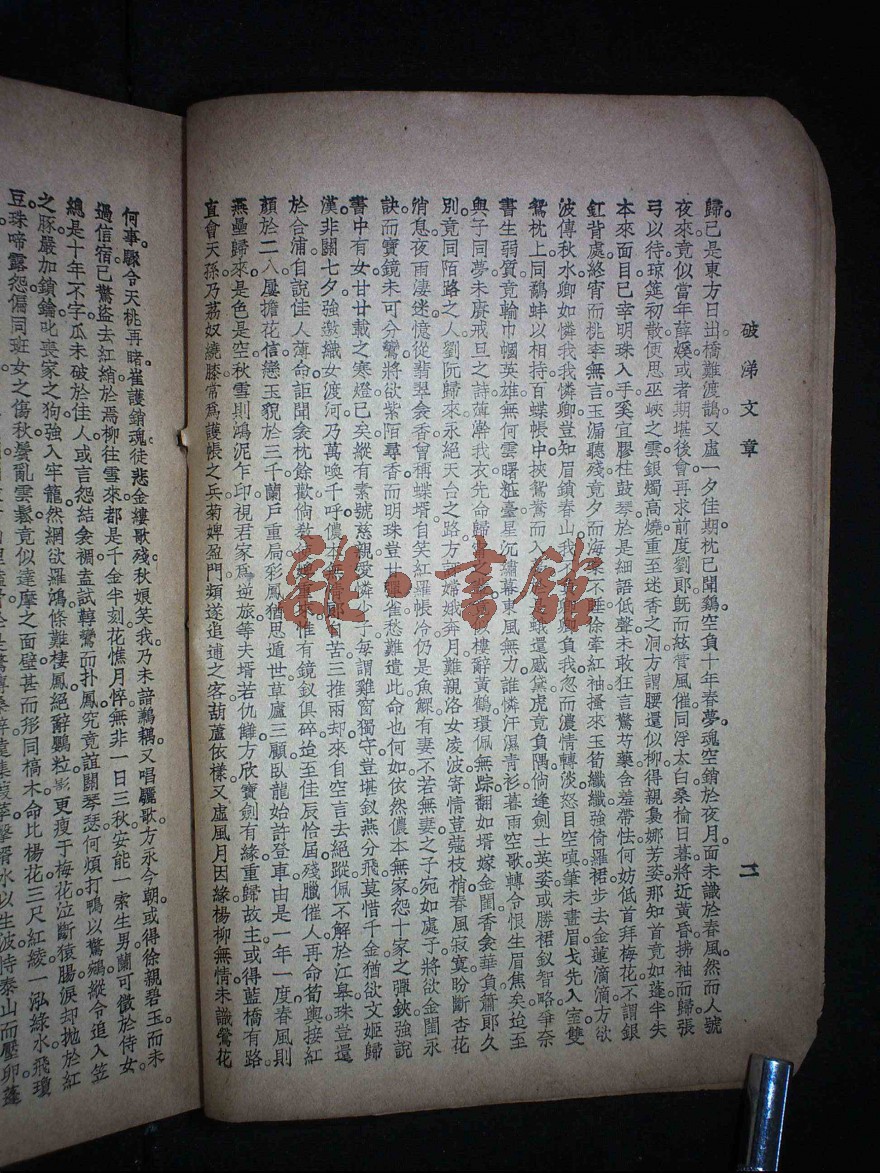 破涕文章
二
歸。已是東方日出橋難渡鵲又虛一夕佳期枕已聞鷄空負十年春夢魂空銷於夜月面未識於春風然而人號
夜來竟似當年薛嫒或者期堪後會再求前度劉郎旣而絃管風催同浮太白桑榆日暮將近黃昏拂袖而歸張
弓以待琼筵初散便思巫峽之雲銀燭高燒重至迷香之洞方謂腰還似柳得親梟娜芳姿那知首竟如蓬半失
本來面目已幸明珠入手奚宜膠柱鼓琴於是細語低聲未敢狂言驚芍藥含羞帶怯何妨低首拜梅花不謂銀
釭背處終宵而桃李無言玉漏聽殘竟夕而海棠不睡徐牽紅袖搔來玉筍纖纖強倚羅裙步去金蓮滴滴方欲
波傳秋水卿如憐我我憐卿豈知眉鎖春山我不負卿卿負我忽而濃情轉淡怒目空嗔筆未畫眉戈先入室雙
鴛枕上同鷸蚌以相持百蝶帳中挾鴛鴦而入 蛾還蹙黛虎竟負隅倘逢劍士英姿或勝裙釵智略爭奈
書生弱質竟輸巾幗英雄無何雲曙粧臺星沉繡幕東風無力誰憐汗濕靑衫暮雨空歌轉令恨生眉焦矣迨至
與子同夢未賡戒旦之詩薄澣我衣先命歸 之 似樓辭黃鶴環佩無踪翻如壻嫁金閨香衾華負鷫郎久
別竟同陌路之人劉阮歸來永絕天台之路方 嫦娥奔月難親洛女凌波寄情荳蔻枝梢春風寂寞盼斷杏花
消息夜雨淒迷憶從翡翠衾香曾稱蝶壻自笑紅羅帳冷仍是魚鰥有妻不若無妻之子宛如處子將欲金閨永
訣而寶鏡未可分鸞將欲紫陌尋香而明珠豈甘彈雀愁難遣此命也何如依然儂本無家怨十家之彈鋏強說
書中有女甘廿載之寒燈已矣縱有素號慈親愛憐少子每謂雞窗獨守豈堪釵燕分飛莫惜千金猶欲文姬歸
漢非關七夕強邀織女渡河乃萬喚千呼儂本 郞日苦三推兩却來自空言去絕蹤佩不解於江臯珠豈還
於合浦自說佳人薄命詎聞衾枕餘歡倘教 惟有鏡釵俱碎迨至佳辰恰屆殘臘催人再命荀輿接紅
顏於二八屢擔花信戀玉貌於三千蘭戶重扃彩鳳猶思遁世草廬三顧臥龍始許登車由是一年一度春風則
燕壘歸來是色是空秋雪則鴻泥乍印視君家爲逆旅等夫壻若仇讎方欣寶劍有緣重歸故主或得藍橋有路
直會天孫乃荔奴繞膝常爲護帳之兵菊婢盈門頻遂追逋之客葫蘆依樣又虛風月因緣楊柳無情未識鶯花
何事。驟令天桃再睹崔護銷魂徒悲金縷歌殘秋娘笑我乃未諳鶼鶼又唱驪歌方永今朝或得徐親碧玉而未
過信宿已驚盜去紅綃於焉柳往雪來都是千金半刻花憔月悴無非一日三秋安能一索生男蘭可徵於侍女。
總是十年不字瓜未破於佳人或言怨結衾裯盍試轉鸞而扑鳳究竟誼關琴瑟何煩打鴨以驚鴛縱令追入笠
之豚嚴加鎖鑰叱喪家之狗強入牢籠然網欲羅鴻條難棲鳳絕辭鸚粒影更瘦于梅花泣斷猿腸淚却拋於紅
豆珠啼露怨偏同班女之傷秋鬓亂雲鬆竟似達摩之面壁甚而形同槁木命比楊花三尺紅綾一泓綠水飛瓊
壻水以生波恃泰山而壓卵蓬